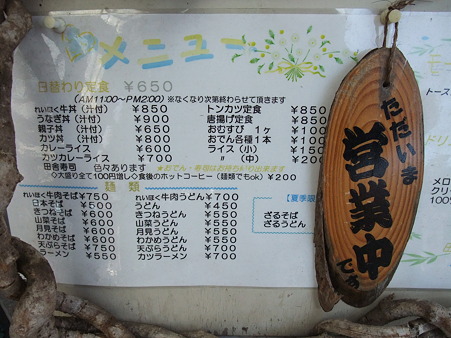 メニュー
日替わり定食 ¥650
(AM11:00〜PM2:00) ※なくなり次第終わらせて頂きます
れいほく牛丼(汁付) ¥850
うなぎ丼(汁付) ¥900
親子丼(汁付) ¥650
カツ丼(汁付) ¥650
カレーライス ¥600
カツカレーライス ¥700
田舎寿司 色々あります
トンカツ定食 ¥850
唐揚げ定食 ¥850
おむすび 1ヶ ¥100
おでん各種1本 ¥100
ライス(小) ¥150
〃(中) ¥200
★おでん・寿司はお持ち帰り出来ます
◇大盛り全て100円増し◇食後のホットコーヒー(種類でもok) ¥200
麺類
れいほく牛肉そば ¥750
日本そば ¥500
きつねそば ¥600
山菜そば ¥600
月見そば ¥600
わかめそば ¥600
天ぷらそば ¥750
ラーメン ¥550
れいほく牛肉うどん ¥700
うどん ¥450
きつねうどん ¥550
山菜うどん ¥550
月見うどん ¥550
わかめうどん ¥550
天ぷらうどん ¥700
カツラーメン ¥700
【夏季限
ざるそば
ざるうどん
ただいま
営業中
です
トース
メロ
クリ
100%